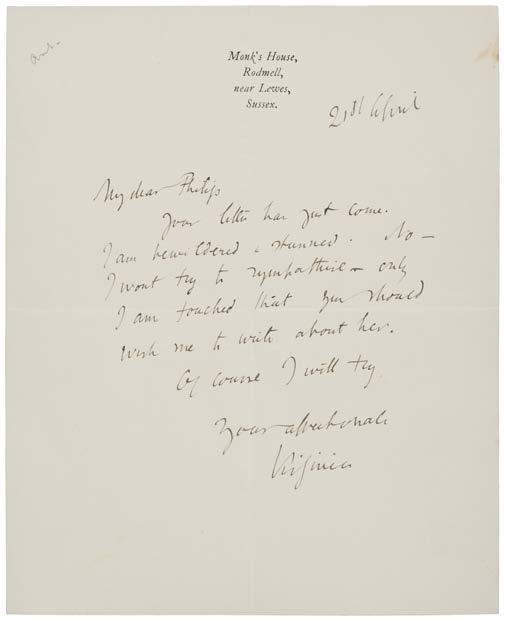 Monk's House,
Rodmell,
near Lewes,
Sussex.
21st April
My dear Philip
Your letter has just come.
I am bewildered & stunned. No —
I wont try to sympathise — only
I am touched that you should
wish me to write about her.
Of course I will try.
Your affectionate
Virginia